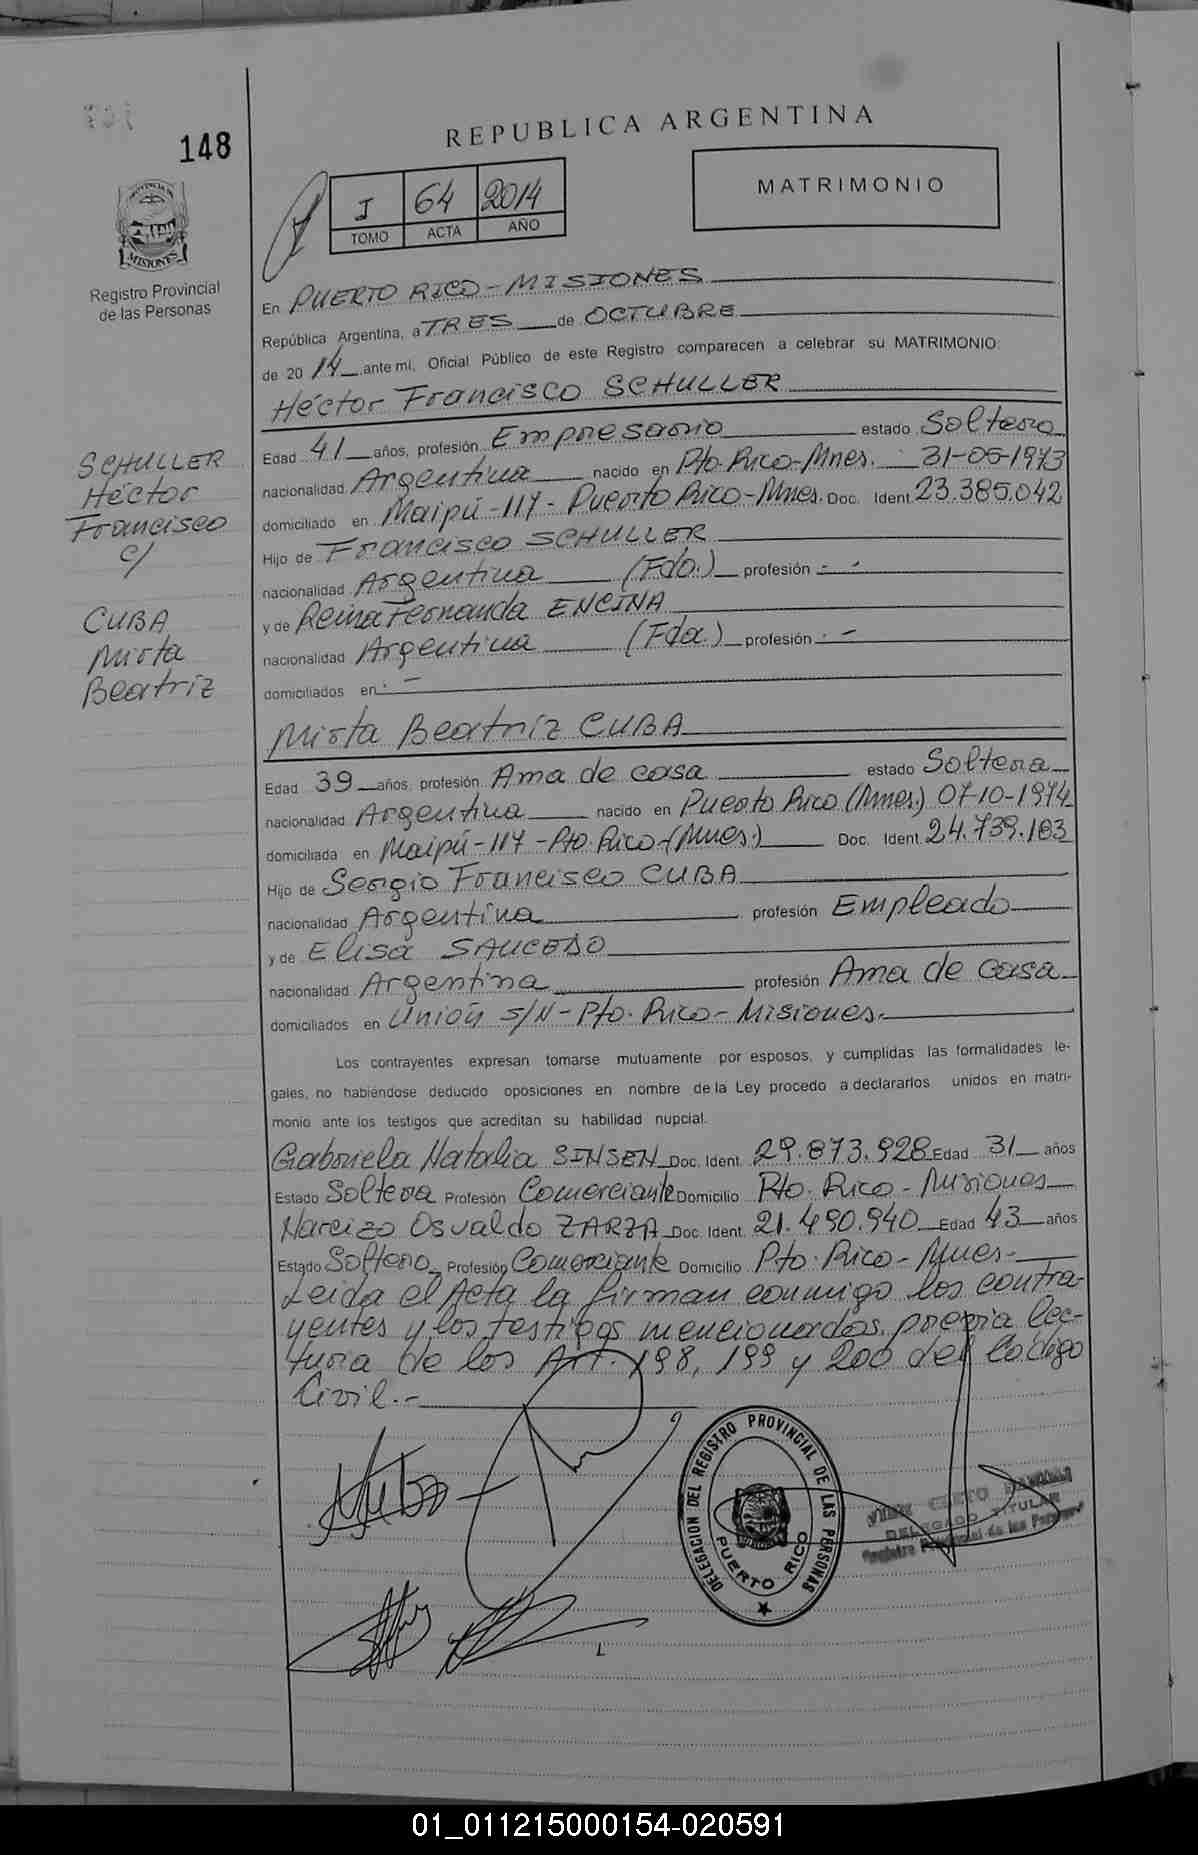 148
REPUBLICA ARGENTINA
I 64 2014
TOMO ACTA AÑO
MATRIMONIO
PROVINCIA DE
MISIONES
Registro Provincial
de las Personas
En PUERTO RICO-MISIONES
República Argentina, a TRES de OCTUBRE
de 2014 ante mi, Oficial Público de este Registro comparecen a celebrar su MATRIMONIO:
Héctor Francisco SCHULLER
Edad 41 años, profesión Empresario estado Soltero
nacionalidad Argentina nacido en Pto. Rico-Mnes. 31-05-1973
domiciliado en Maipú-117-Puerto Rico-Mnes. Doc. Ident. 23.385.042
Hijo de Francisco SCHULLER
nacionalidad Argentina (Fdo.) profesión - -
y de Reina Fernanda ENCINA
nacionalidad Argentina (Fda.) profesión - -
domiciliados en - -
SCHULLER
Héctor
Francisco
c/
CUBA
Mirta
Beatriz
Mirta Beatriz CUBA
Edad 39 años, profesión Ama de casa estado Soltera
nacionalidad Argentina nacido en Puerto Rico (Mnes.) 07-10-1974
domiciliada en Maipú-117-Pto. Rico-(Mnes.) Doc. Ident. 24.739.183
Hijo de Sergio Francisco CUBA
nacionalidad Argentina profesión Empleado
y de Elisa SAUCEDO
nacionalidad Argentina profesión Ama de casa
domiciliados en Unión S/N-Pto. Rico-Misiones.
Los contrayentes expresan tomarse mutuamente por esposos, y cumplidas las formalidades le-
gales, no habiéndose deducido oposiciones en nombre de la Ley procedo a declararlos unidos en matri-
monio ante los testigos que acreditan su habilidad nupcial.
Gabriela Natalia SINSEN Doc. Ident. 29.873.928 Edad 31 años
Estado Soltera Profesión Comerciante Domicilio Pto. Rico-Misiones
Narcizo Osvaldo ZARZA Doc. Ident. 21.490.940 Edad 43 años
Estado Soltero Profesión Comerciante Domicilio Pto. Rico-Mnes-
Leída el Acta la firman conmigo los contra-
yentes y los testigos mencionados, previa lec-
tura de los Art. 198, 199 y 200 del Código
Civil.-
DELEGACION DEL REGISTRO PROVINCIAL DE LAS PERSONAS
PUERTO RICO
DELEGADO TITULAR
Registro Provincial de las Personas
01_011215000154-020591